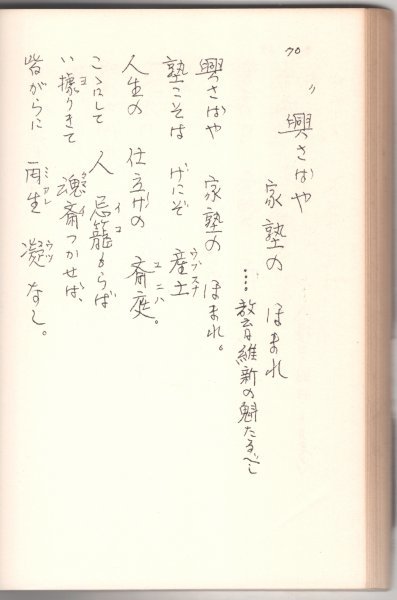 70
〃 興さばや
家塾の ほまれ
‥‥教育維新の魁たるべし
興さばや 家塾の ほまれ。
塾こそは げにぞ 産土ウブスナ
人生の 仕立げの 斎庭ユニハ。
こゝにして 人 忌籠イコもらば
い據ヨりきて 魂斎つかせば、
皆がらに 再生ミアレ 凝なし。